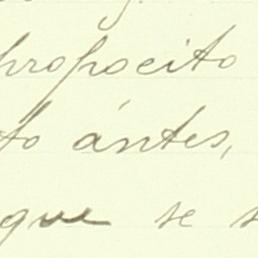 propocito
to ántes,
que se s